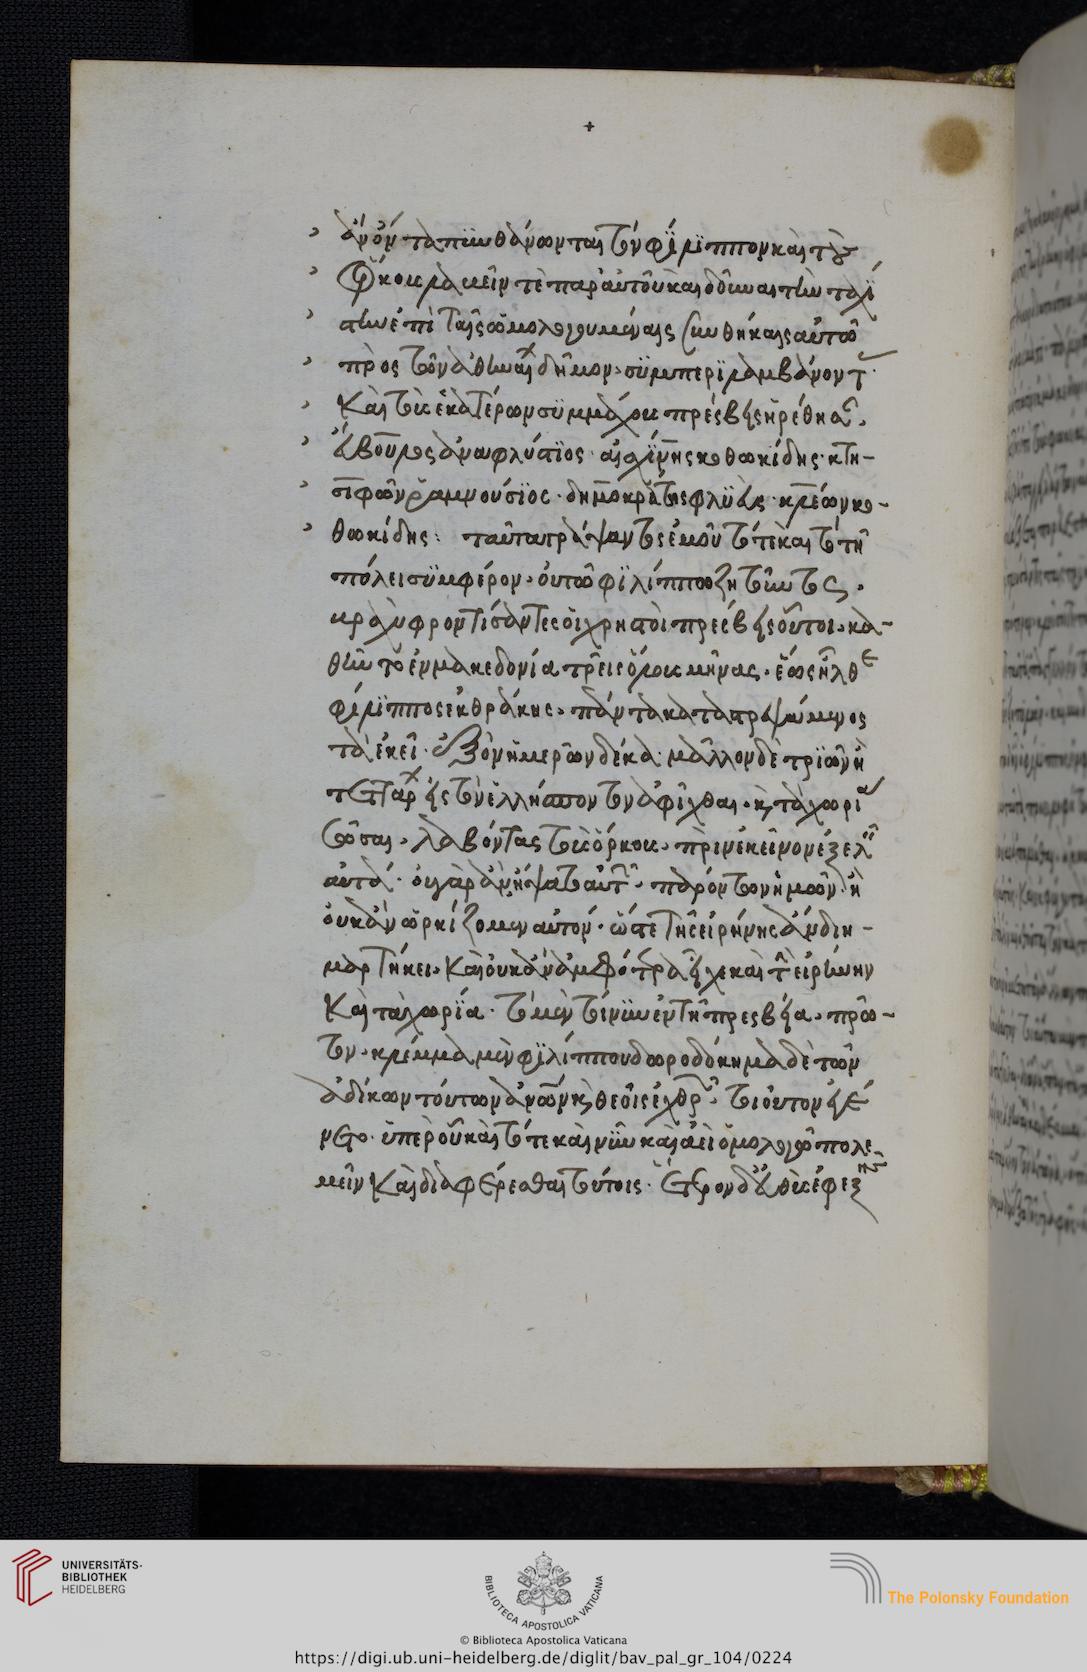 ἂν ὄντα πυνθάνωνται τὸν φίλιππον καὶ τοὺς
ὅρκους λαβεῖν τε παρ' αὐτοῦ καὶ δοῦναι τὴν ταχί
στην ἐπὶ ταῖς ὡμολογημέναις συνθήκαις αὐτῶ
πρὸς τὸν ἀθηναίων δῆμον. συμπεριλαμβάνοντας
καὶ τοὺς ἑκατέρων συμμάχους πρέσβεις ἡρέθησαν.
εὔβουλος ἀναφλύστιος. αἰσχίνης κοθωκίδης. κτη-
σιφῶν ῥαμνούσιος. δημοκράτης φλυεύς. κλέων κο-
θωκίδης: ταῦτα γράψαντος ἐμοῦ τότε καὶ τὸ τῆ
πόλει συμφέρον. οὐ τῶ φιλίππω ζητοῦντος.
βραχὺ φροντίσαντες οἱ χρηστοὶ πρέσβεις οὗτοι. κα-
θῆντο ἐν μακεδονία τρεῖς ὅλους μῆνας. ἕως ἦλθε
φίλιππος ἐκ θράκης. πάντα καταστρεψάμενος
τὰ ἐκεῖ. ἐξὸν ἡμερῶν δέκα. μᾶλλον δὲ τριῶν ἢ
τεττάρων εἰς τὸν ἑλλήσποντον ἀφῖχθαι. καὶ τὰ χωρία
σῶσαι. λαβόντας τοὺς ὅρκους. πρὶν ἐκεῖνον ἐξελεῖν
αὐτά. οὐ γὰρ ἂν ἥψατο αὐτῶν. παρόντων ἡμῶν. ἢ
οὐκ ἂν ὡρκίζομεν αὐτόν. ὥστε τῆς εἰρήνης ἂν διη-
μαρτήκει. καὶ οὐκ ἂν ἀμφότερα εἶχε καὶ τὴν εἰρήνην
καὶ τὰ χωρία. τὸ μὲν τοίνυν ἐν τῆ πρεσβεία. πρῶ-
τον. κλέμμα μὲν φιλίππου δωροδόκημα δὲ τῶν
ἀδίκων τούτων ἀνθρώπων καὶ θεοῖς ἐχθρῶν. τοιοῦτον ἐγέ
νετο. ὑπὲρ οὗ καὶ τότε καὶ νῦν καὶ ἀεὶ ὁμολογῶ πολε-
μεῖν καὶ διαφέρεσθαι τούτοις. ἕτερον δ' εὐθὺς ἐφεξῆς
UNIVERSITÄTS-
BIBLIOTHEK
HEIDELBERG
BIBLIOTECA APOSTOLICA VATICANA
The Polonsky Foundation
© Biblioteca Apostolica Vaticana
https://digi.ub.uni-heidelberg.de/diglit/bav_pal_gr_104/0224